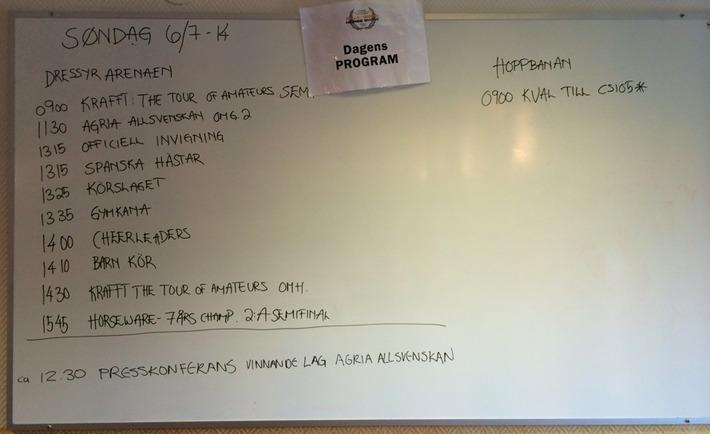 SØNDAG 6/7-14
Dagens
PROGRAM
DRESSYR ARENAEN
0900 KRAFFT: THE TOUR OF AMATEURS SEM.
1130 AGRIA ALLSVENSKAN OMG 2
1315 OFFICIELL INVIGNING
1315 SPANSKA HÄSTAR
1325 KÖRSLAGET
1335 GYMKANA
1400 CHEERLEADERS
1410 BARN KÖR
1430 KRAFFT THE TOUR OF AMATEURS OMH.
1545 HORSEWARE- 7 ÅRS CHAMP. 2:A SEMIFINAL
ca 12.30 PRESSKONFERANS VINNANDE LAG AGRIA ALLSVENSKAN
HOPPBANAN
0900 KVAL TILL CSI05*